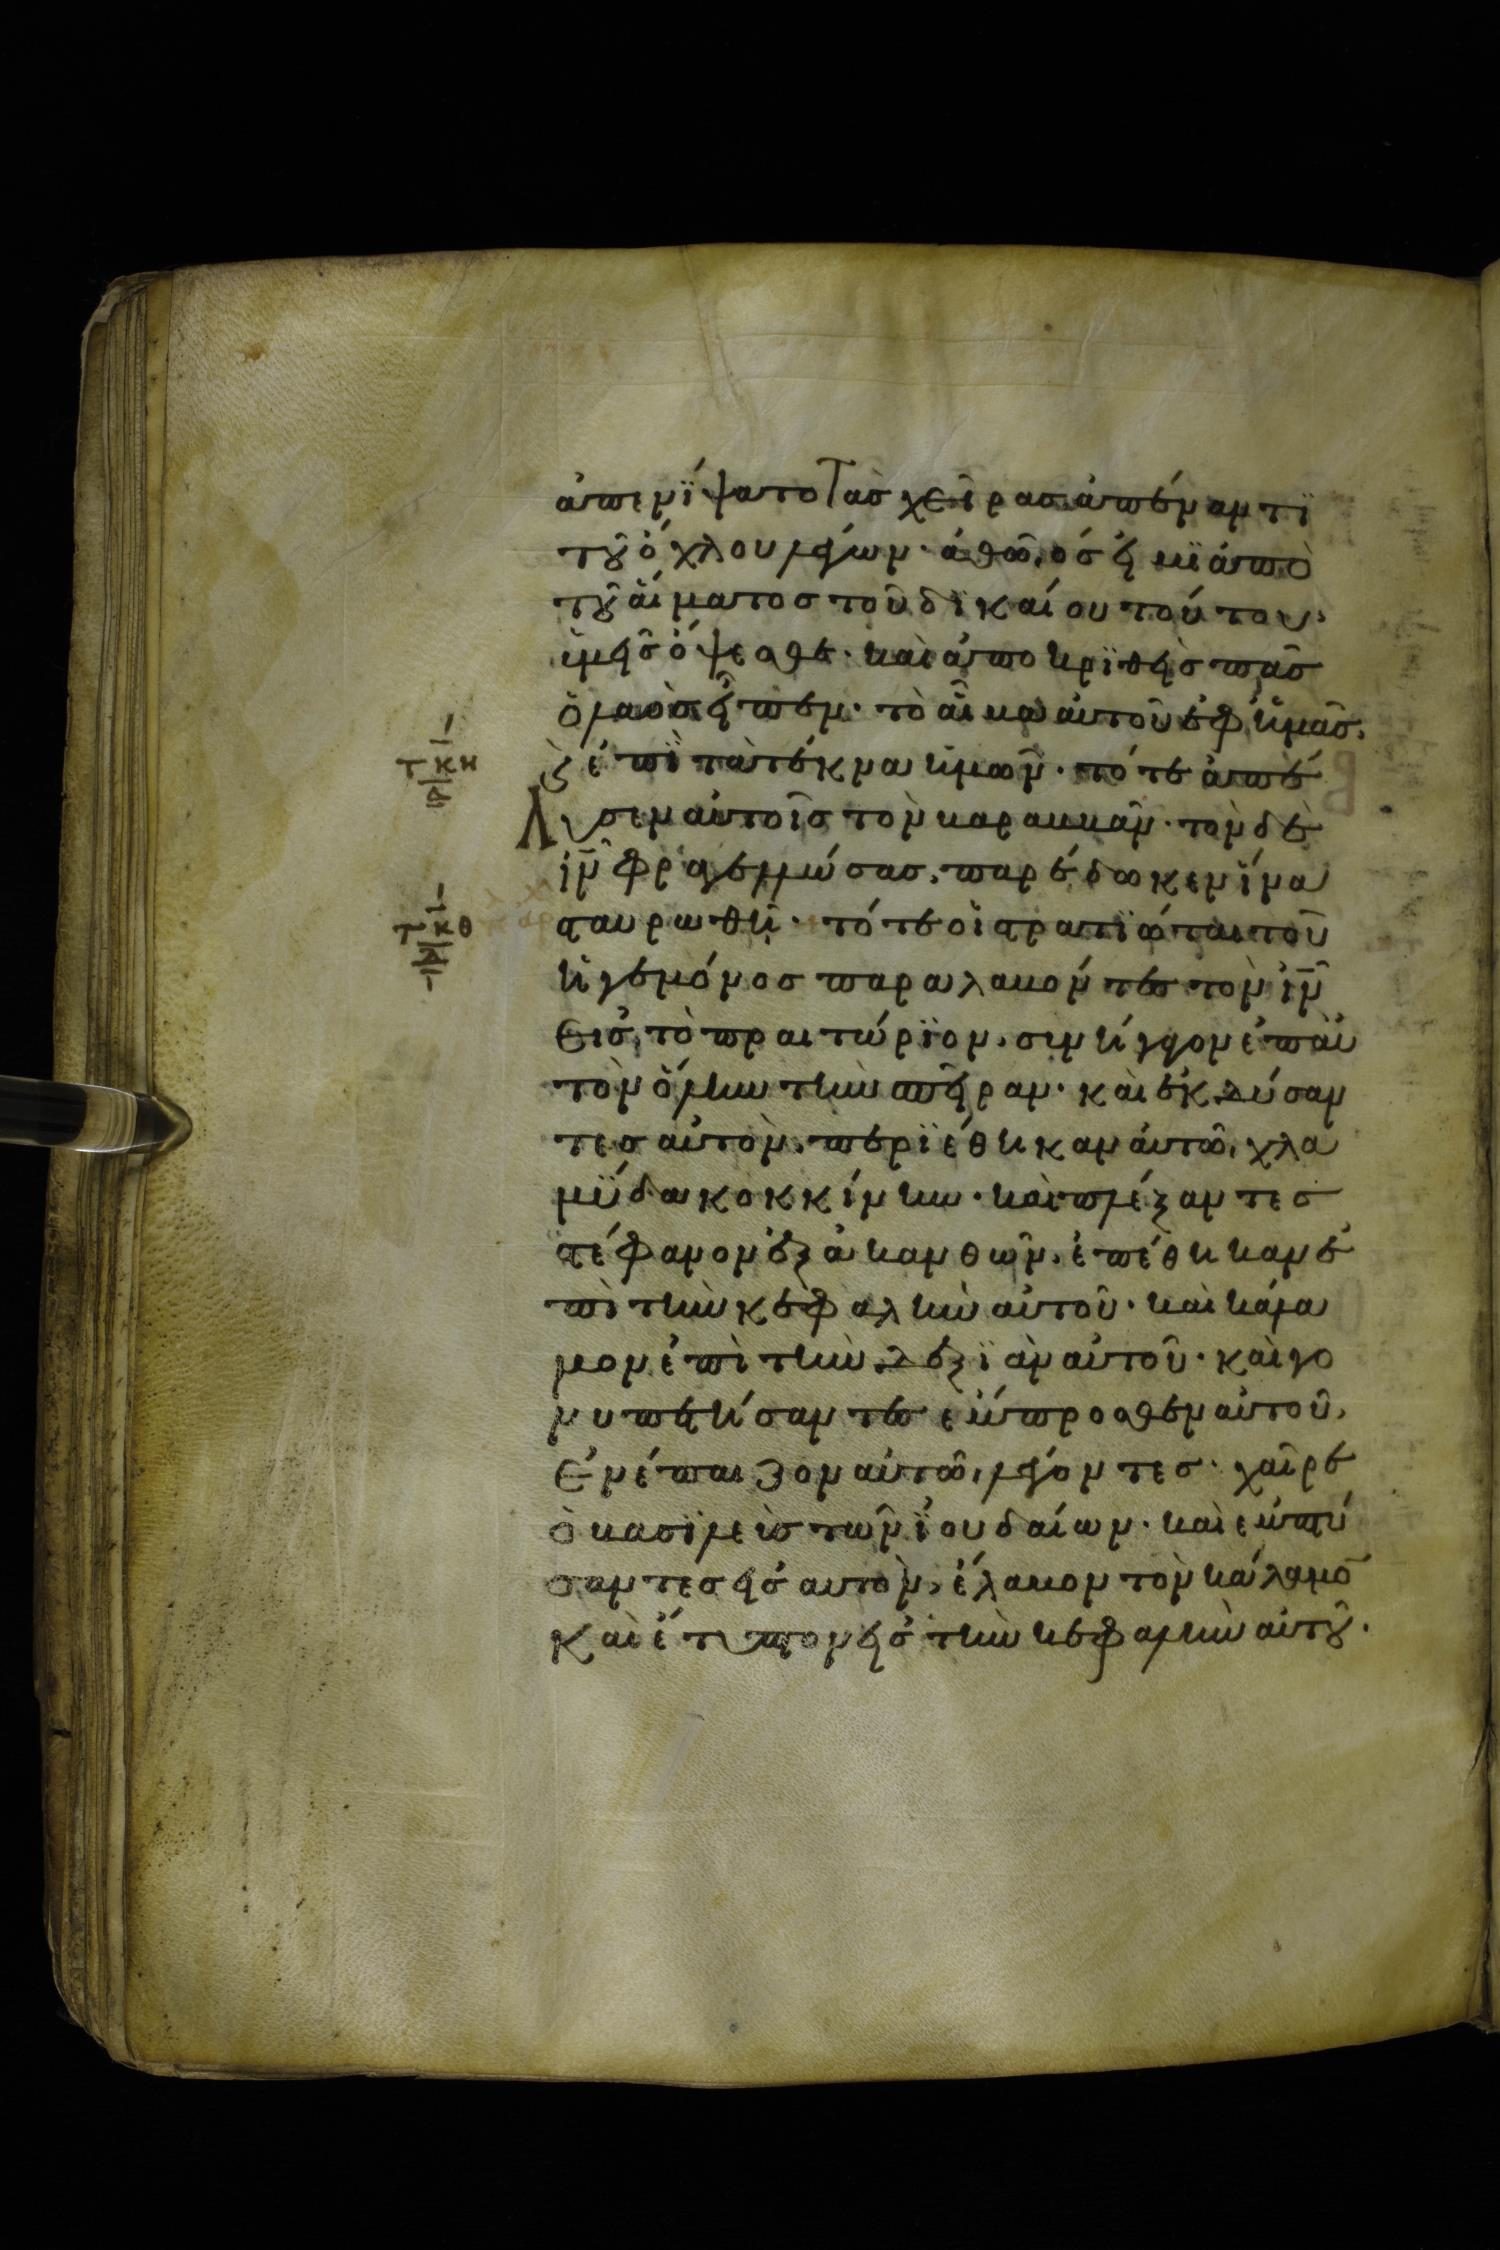 ἀπενίψατο τὰσ χεῖρασ ἀπέναντϊ
τοῦ ὄχλου λέγων· ἀθῶοσ εἰμϊ ἀπὸ
τοῦ αἵματοσ τοῦ δϊκαίου τούτου·
ὑμεῖσ ὄψεσθε· καὶ ἀποκρϊθεὶσ πᾶσ
ὁ λαὸσ εἶπεν· τὸ αἷμα αὐτοῦ ἐφ ἡμᾶσ.
τκη
δ
ϗ ἐπῒ τὰ τέκνα ἡμῶν· τότε ἀπέ
λυσεν αὐτοῖσ τὸν βαραββᾶν· τὸν δὲ
ι̅ν̅ φραγελλώσασ, παρέδωκεν ἵνα
τκθ
δ
σταυρωθῆ· τότε οἱ στρατϊῶται τοῦ
ἡγεμόνοσ παραλαβόντεσ τὸν ι̅ν̅
εἰσ τὸ πραιτώρϊον, συνήγαγον ἐπ αὐ
τὸν ὅλην τὴν σπεῖραν· καὶ ἐκδύσαν
τεσ αὐτὸν, περϊέθηκαν αὐτῶ, χλα
μύδα κοκκίνην· καὶ πλέξαντεσ
στέφανον ἐξ ἀκανθῶν, ἐπέθηκαν ἐ
πὶ τὴν κεφαλὴν αὐτοῦ· καὶ κάλα
μον ἐπὶ τὴν δεξϊὰν αὐτοῦ· καὶ γο
νυπετήσαντεσ ἔμπροσθεν αὐτοῦ,
ἐνέπαιζον αὐτῶ, λέγοντεσ· χαῖρε
ὁ βασϊλεὺσ τῶν ϊουδαίων· καὶ ἐμπτύ
σαντεσ εἰσ αὐτὸν, ἔλαβον τὸν κάλαμο̅
καὶ ἔτυπτον εἰσ τὴν κεφαλὴν αὐτοῦ.